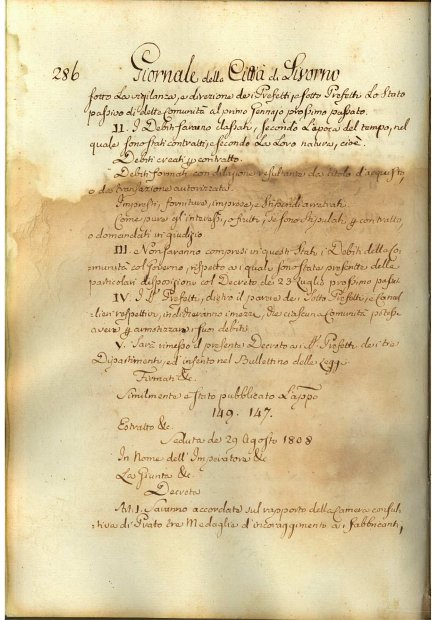 286 Giornale della Città di Livorno
sotto La vigilanza, e direzione dei Prefetti, e sotto Prefetti Lo Stato
passivo di dette Comunità al primo Gennajo prossimo passato.
II. I Debiti saranno classati, secondo L'apoca del tempo, nel
quale sono stati contratti, e secondo La Loro natura, cioè.
Debiti creati p contratto.
Debiti formati con dilazione resultante da titolo d'acquisto,
o da transazione autorizzata.
Imprestiti, forniture, imprese, e Stipendi arretrati.
Come pure gl' interessi, o frutti, se sono stipulati p contratto
o domandati in giudizio.
III. Non saranno compresi in questi Stati, i Debiti delle Co,
munità col Governo, rispetto ai quali sono state presentte delle
particolari disposizioni col Decreto de 23 Luglio prossimo pass.
IV. I SS. Prefetti, dietro il parere dei sotto Prefetti, e Consi,
lieri respettivi, indicheranno i mezzi, che ciascuna Comunità potesse
avere p ammortizzare i suoi debiti.
V. Sarà rimesso il presente Decreto ai SS. Prefetti, dei tre
Dipartimenti, ed inserito nel Bullettino delle Leggi.
Firmati &c.
Similmente è stato pubblicato L'appo
149. 147.
Estratto &c.
Seduta de 29 Agosto 1808
In Nome dell' Imperatore &c
La Giunta &c.
Decreta
Art. I. Saranno accordate sul rapporto della Camera consul,
tiva di Prato tre Medaglie d'incoraggimento ai Fabbricanti,